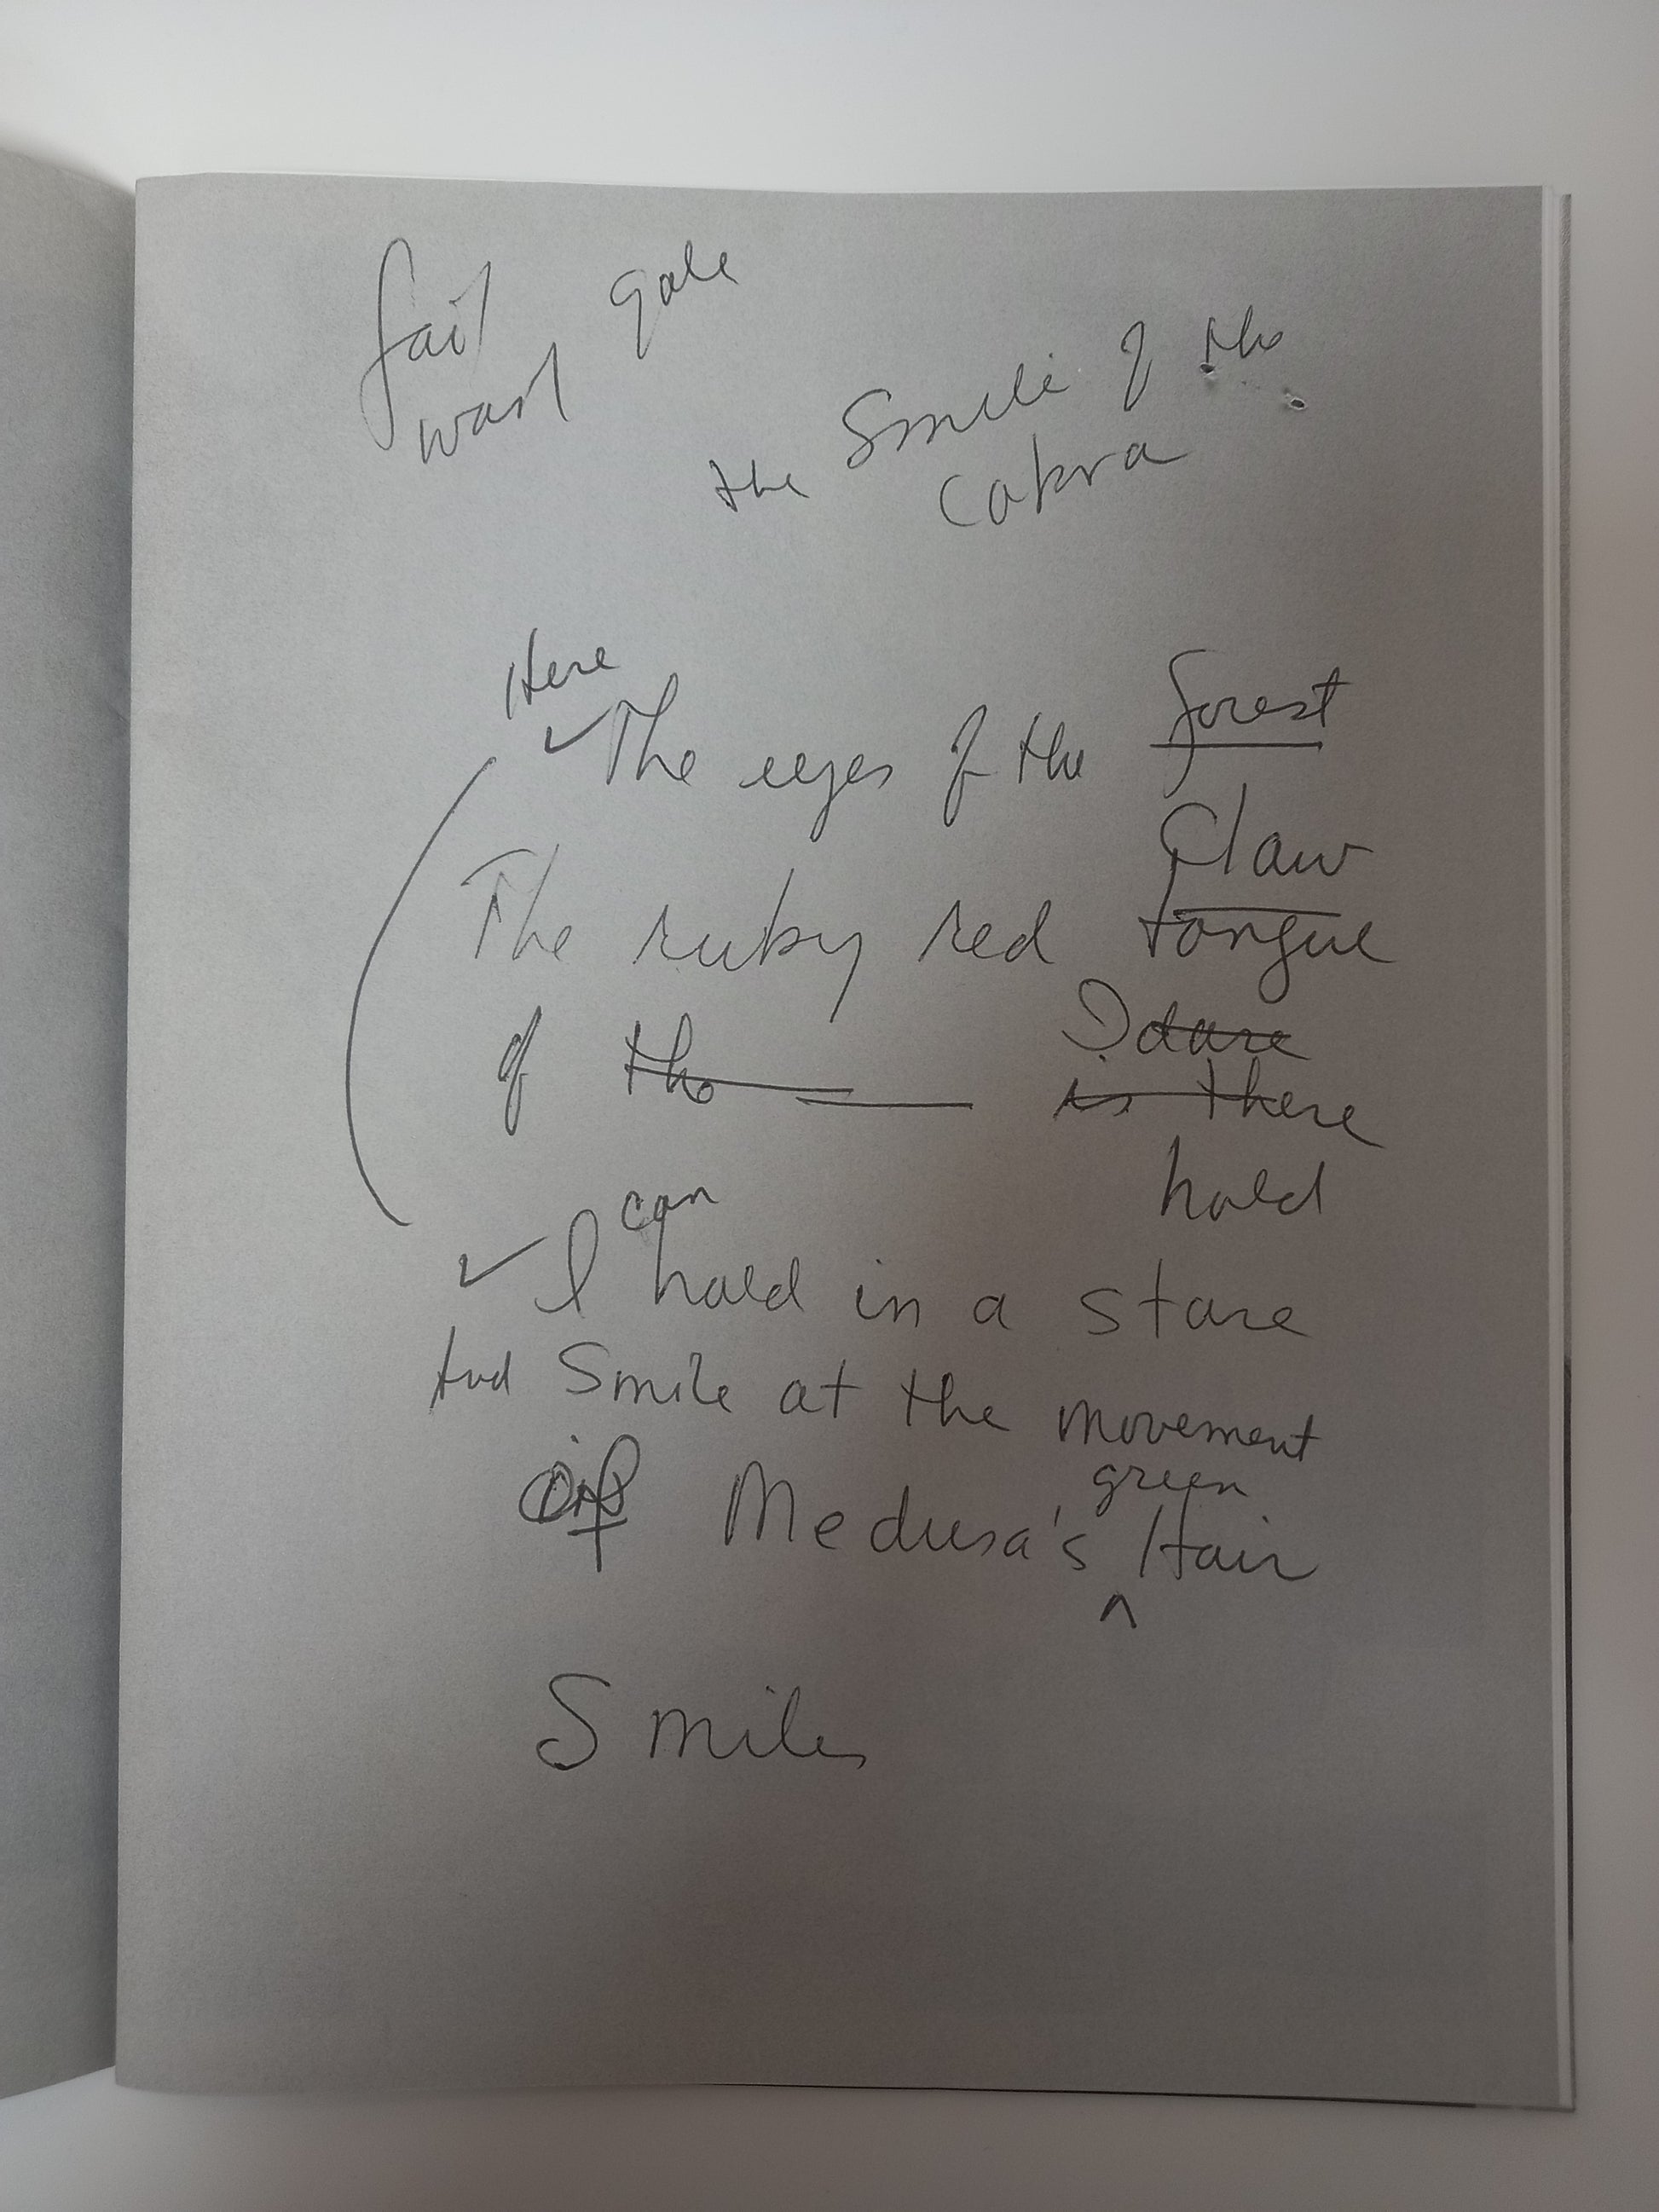 gale
the Smile of the
Cobra
Here
The eyes of the forest
Claw
The ruby red tongue
of the I dare
is there
hold
can
I hold in a stare
And Smile at the movement
green
of Medusa's Hair
^
Smile